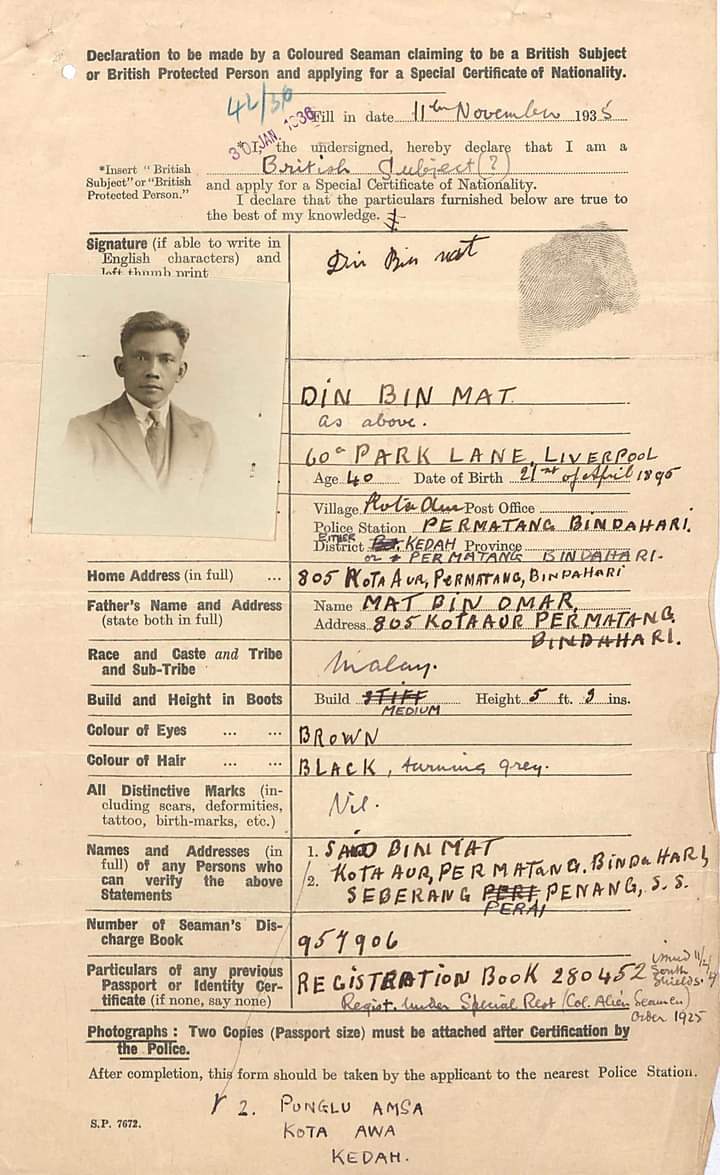 Declaration to be made by a Coloured Seaman claiming to be a British Subject
or British Protected Person and applying for a Special Certificate of Nationality.
42/36
30 JAN. 1936
Fill in date 11th November 1935
*I, the undersigned, hereby declare that I am a
*Insert "British
Subject" or "British
Protected Person."
British Subject (?)
and apply for a Special Certificate of Nationality.
I declare that the particulars furnished below are true to
the best of my knowledge.
Signature (if able to write in
English characters) and
left thumb print
Din Bin mat
DIN BIN MAT
as above.
60a PARK LANE, LIVERPOOL
Age 40 Date of Birth 21st of April 1895
Village Kota Aur Post Office
Police Station PERMATANG BINDAHARI.
EITHER
District KEDAH Province
or PERMATANG BINDAHARI.
Home Address (in full) ... 805 KOTA AUR, PERMATANG, BINDAHARI
Father's Name and Address
(state both in full)
Name MAT BIN OMAR,
Address 805 KOTA AUR PERMATANG
BINDAHARI.
Race and Caste and Tribe
and Sub-Tribe
Malay.
Build and Height in Boots Build STIFF Height 5 ft. 3 ins.
MEDIUM
Colour of Eyes ... ... BROWN
Colour of Hair ... ... BLACK, turning grey.
All Distinctive Marks (in-
cluding scars, deformities,
tattoo, birth-marks, etc.)
Nil.
Names and Addresses (in
full) of any Persons who
can verify the above
Statements
1. BIN MAT
KOTA AUR, PERMATANG. BINDAHARI,
2. SEBERANG PENANG, S.S.
PERAI
Number of Seaman's Dis-
charge Book
957906
Particulars of any previous
Passport or Identity Cer-
tificate (if none, say none)
REGISTRATION BOOK 280452 issued
South
Shields.
Regist. under Special Rest (Col. Alien Seamen)
Order 1925
Photographs: Two Copies (Passport size) must be attached after Certification by
the Police.
After completion, this form should be taken by the applicant to the nearest Police Station.
2. PUNGLU AMSA
KOTA AWA
KEDAH.
S.P. 7672.